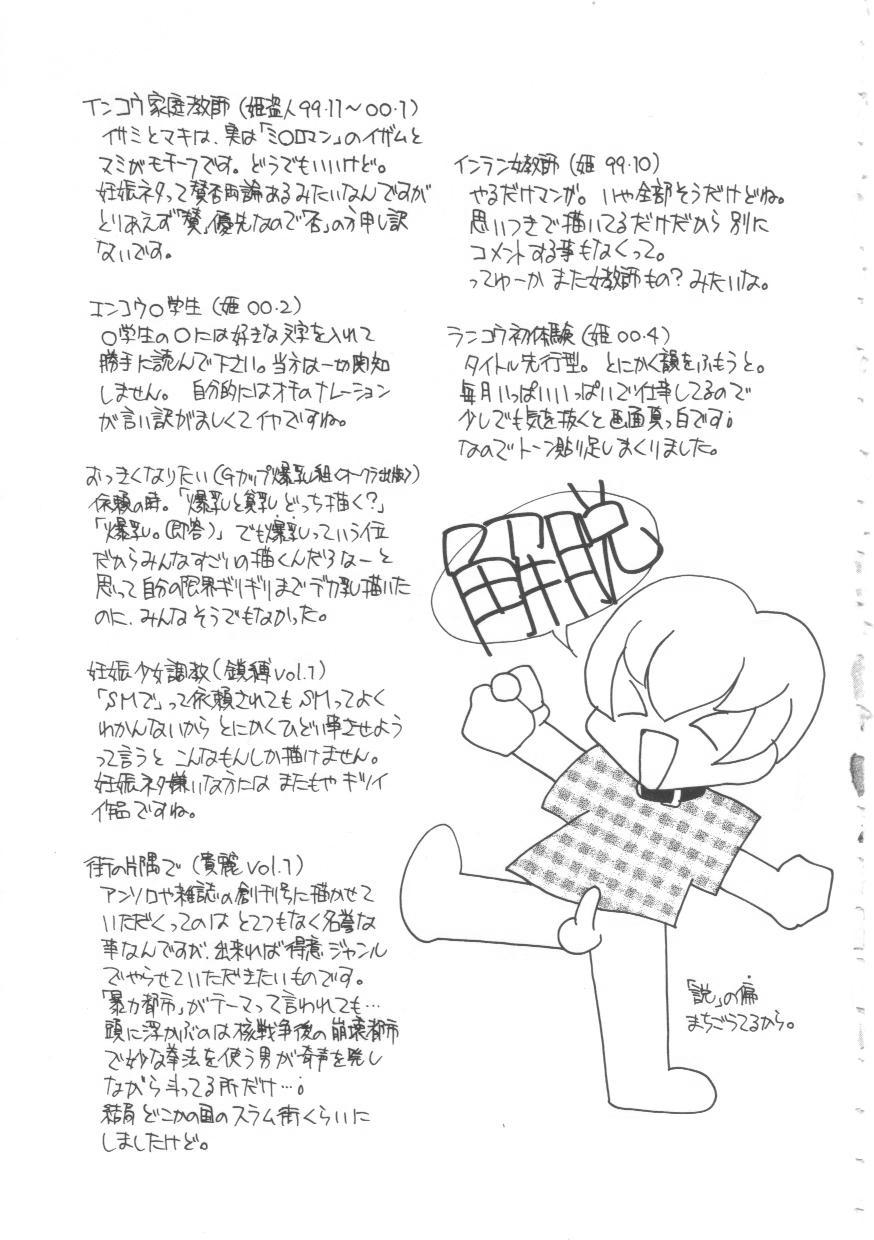 インコウ家庭教師(姫盗人99・11〜00・1)
イサミとマキは、実は「ミ〇ロマン」のイザムと
マミがモチーフです。どうでもいいけど。
妊娠ネタって賛否両論あるみたいなんですが
とりあえず「賛」優先なので「否」の方申し訳
ないです。
エンコウ〇学生(姫00・2)
〇学生の〇には好きな文字を入れて
勝手に読んで下さい。当方は一切関知
しません。自分的にはオチのナレーション
が言い訳がましくてイヤですね。
おっきくなりたい(Gカップ爆乳組<オークラ出版>)
依頼の時。「爆乳と貧乳どっち描く?」
「爆乳。(即答)」でも爆乳っていう位
だからみんなすごいの描くんだろなーと
思って自分の限界ギリギリまでデカ乳描いた
のに、みんなそうでもなかった。
妊娠少女調教(鎖縛vol.1)
「SMで」って依頼されてもSMってよく
わかんないからとにかくひどい事させよう
って言うとこんなもんしか描けません。
妊娠ネタ嫌いな方にはまたもやキツイ
作品ですね。
街の片隅で(貴麗vol.1)
アンソロや雑誌の創刊号に描かせて
いただくってのはとてつもなく名誉な
事なんですが、出来れば得意ジャンル
でやらせていただきたいものです。
「暴力都市」がテーマって言われても…
頭に浮かぶのは核戦争後の崩壊都市
で妙な拳法を使う男が奇声を発し
ながら斗ってる所だけ…。
結局どこかの国のスラム街くらいに
しましたけど。
インラン女教師(姫99・10)
やるだけマンガ。いや全部そうだけどね。
思いつきで描いてるだけだから別に
コメントする事もなくって。
ってゆーかまた女教師もの?みたいな。
ランコウ初体験(姫00・4)
タイトル先行型。とにかく韻をふもうと。
毎月いっぱいいっぱいで仕事してるので
少しでも気を抜くと画面真っ白です。
なのでトーン貼り足しまくりました。
「説」の偏
まちごうてるから。